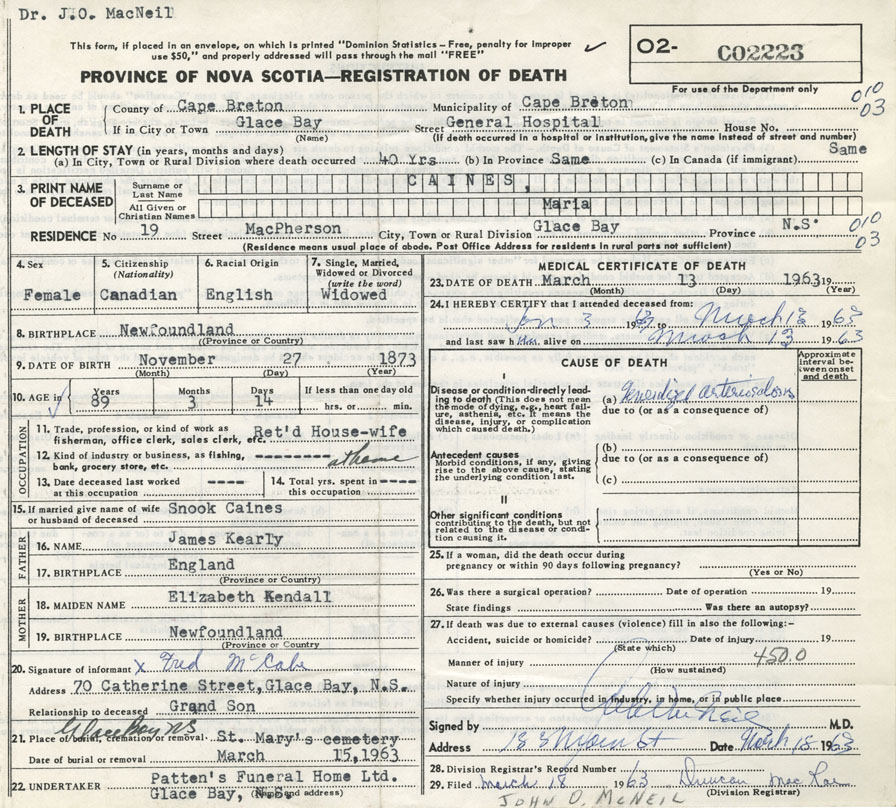 Dr. J.O. MacNeil
This form, if placed in an envelope, on which is printed "Dominion Statistics – Free, penalty for improper
use $50," and properly addressed will pass through the mail "FREE"
✓
O2- C02223
PROVINCE OF NOVA SCOTIA—REGISTRATION OF DEATH
For use of the Department only
1. PLACE OF DEATH
County of Cape Breton Municipality of Cape Breton 010
If in City or Town Glace Bay Street General Hospital House No. 03
(Name) (If death occurred in a hospital or institution, give the name instead of street and number)
2. LENGTH OF STAY (in years, months and days)
(a) In City, Town or Rural Division where death occurred 40 Yrs (b) In Province Same (c) In Canada (if immigrant) Same
3. PRINT NAME OF DECEASED
Surname or Last Name CAINES,
All Given or Christian Names Maria
RESIDENCE No 19 Street MacPherson City, Town or Rural Division Glace Bay Province N.S. 010
03
(Residence means usual place of abode. Post Office Address for residents in rural parts not sufficient)
4. Sex
Female
5. Citizenship
(Nationality)
Canadian
6. Racial Origin
English
7. Single, Married,
Widowed or Divorced
(write the word)
Widowed
8. BIRTHPLACE Newfoundland
(Province or Country)
9. DATE OF BIRTH November 27 1873
(Month) (Day) (Year)
10. AGE in Years 89 Months 3 Days 14 If less than one day old
hrs. or min.
OCCUPATION
11. Trade, profession, or kind of work as
fisherman, office clerk, sales clerk, etc. Ret'd House-wife
12. Kind of industry or business, as fishing,
bank, grocery store, etc. --------- at home
13. Date deceased last worked
at this occupation -----
14. Total yrs. spent in
this occupation -----
15. If married give name of wife
or husband of deceased Snook Caines
FATHER
16. NAME James Kearly
17. BIRTHPLACE England
(Province or Country)
MOTHER
18. MAIDEN NAME Elizabeth Kendall
19. BIRTHPLACE Newfoundland
(Province or Country
20. Signature of informant x Fred McCabe
Address 70 Catherine Street, Glace Bay, N.S.
Relationship to deceased Grand Son
Glace Bay NS
21. Place of burial, cremation or removal St. Mary's cemetery
Date of burial or removal March 15, 1963
22. UNDERTAKER Patten's Funeral Home Ltd.
Glace Bay, N.S.
(Name and address)
MEDICAL CERTIFICATE OF DEATH
23. DATE OF DEATH March 13 1963 19
(Month) (Day) (Year)
24. I HEREBY CERTIFY that I attended deceased from:
Jan 3 19 to March 13 1963
and last saw h alive on March 13 1963
CAUSE OF DEATH
Approximate
interval be-
tween onset
and death
I
Disease or condition directly lead-
ing to death (This does not mean
the mode of dying, e.g., heart fail-
ure, asthenia, etc. It means the
disease, injury, or complication
which caused death.)
(a) Generalized arteriosclerosis
due to (or as a consequence of)
Antecedent causes
Morbid conditions, if any, giving
rise to the above cause, stating
the underlying condition last.
(b)
due to (or as a consequence of)
(c)
II
Other significant conditions
contributing to the death, but not
related to the disease or condi-
tion causing it.
25. If a woman, did the death occur during
pregnancy or within 90 days following pregnancy?
(Yes or No)
26. Was there a surgical operation? Date of operation 19
State findings Was there an autopsy?
27. If death was due to external causes (violence) fill in also the following:–
Accident, suicide or homicide? Date of injury 19
(State which)
Manner of injury 450.0
(How sustained)
Nature of injury
Specify whether injury occurred in industry, in home, or in public place
Signed by M.D.
Address Main St Date March 15 1963
28. Division Registrar's Record Number
29. Filed March 18 1963 Duncan Mac Rae
(Division Registrar)
JOHN O. McNEIL